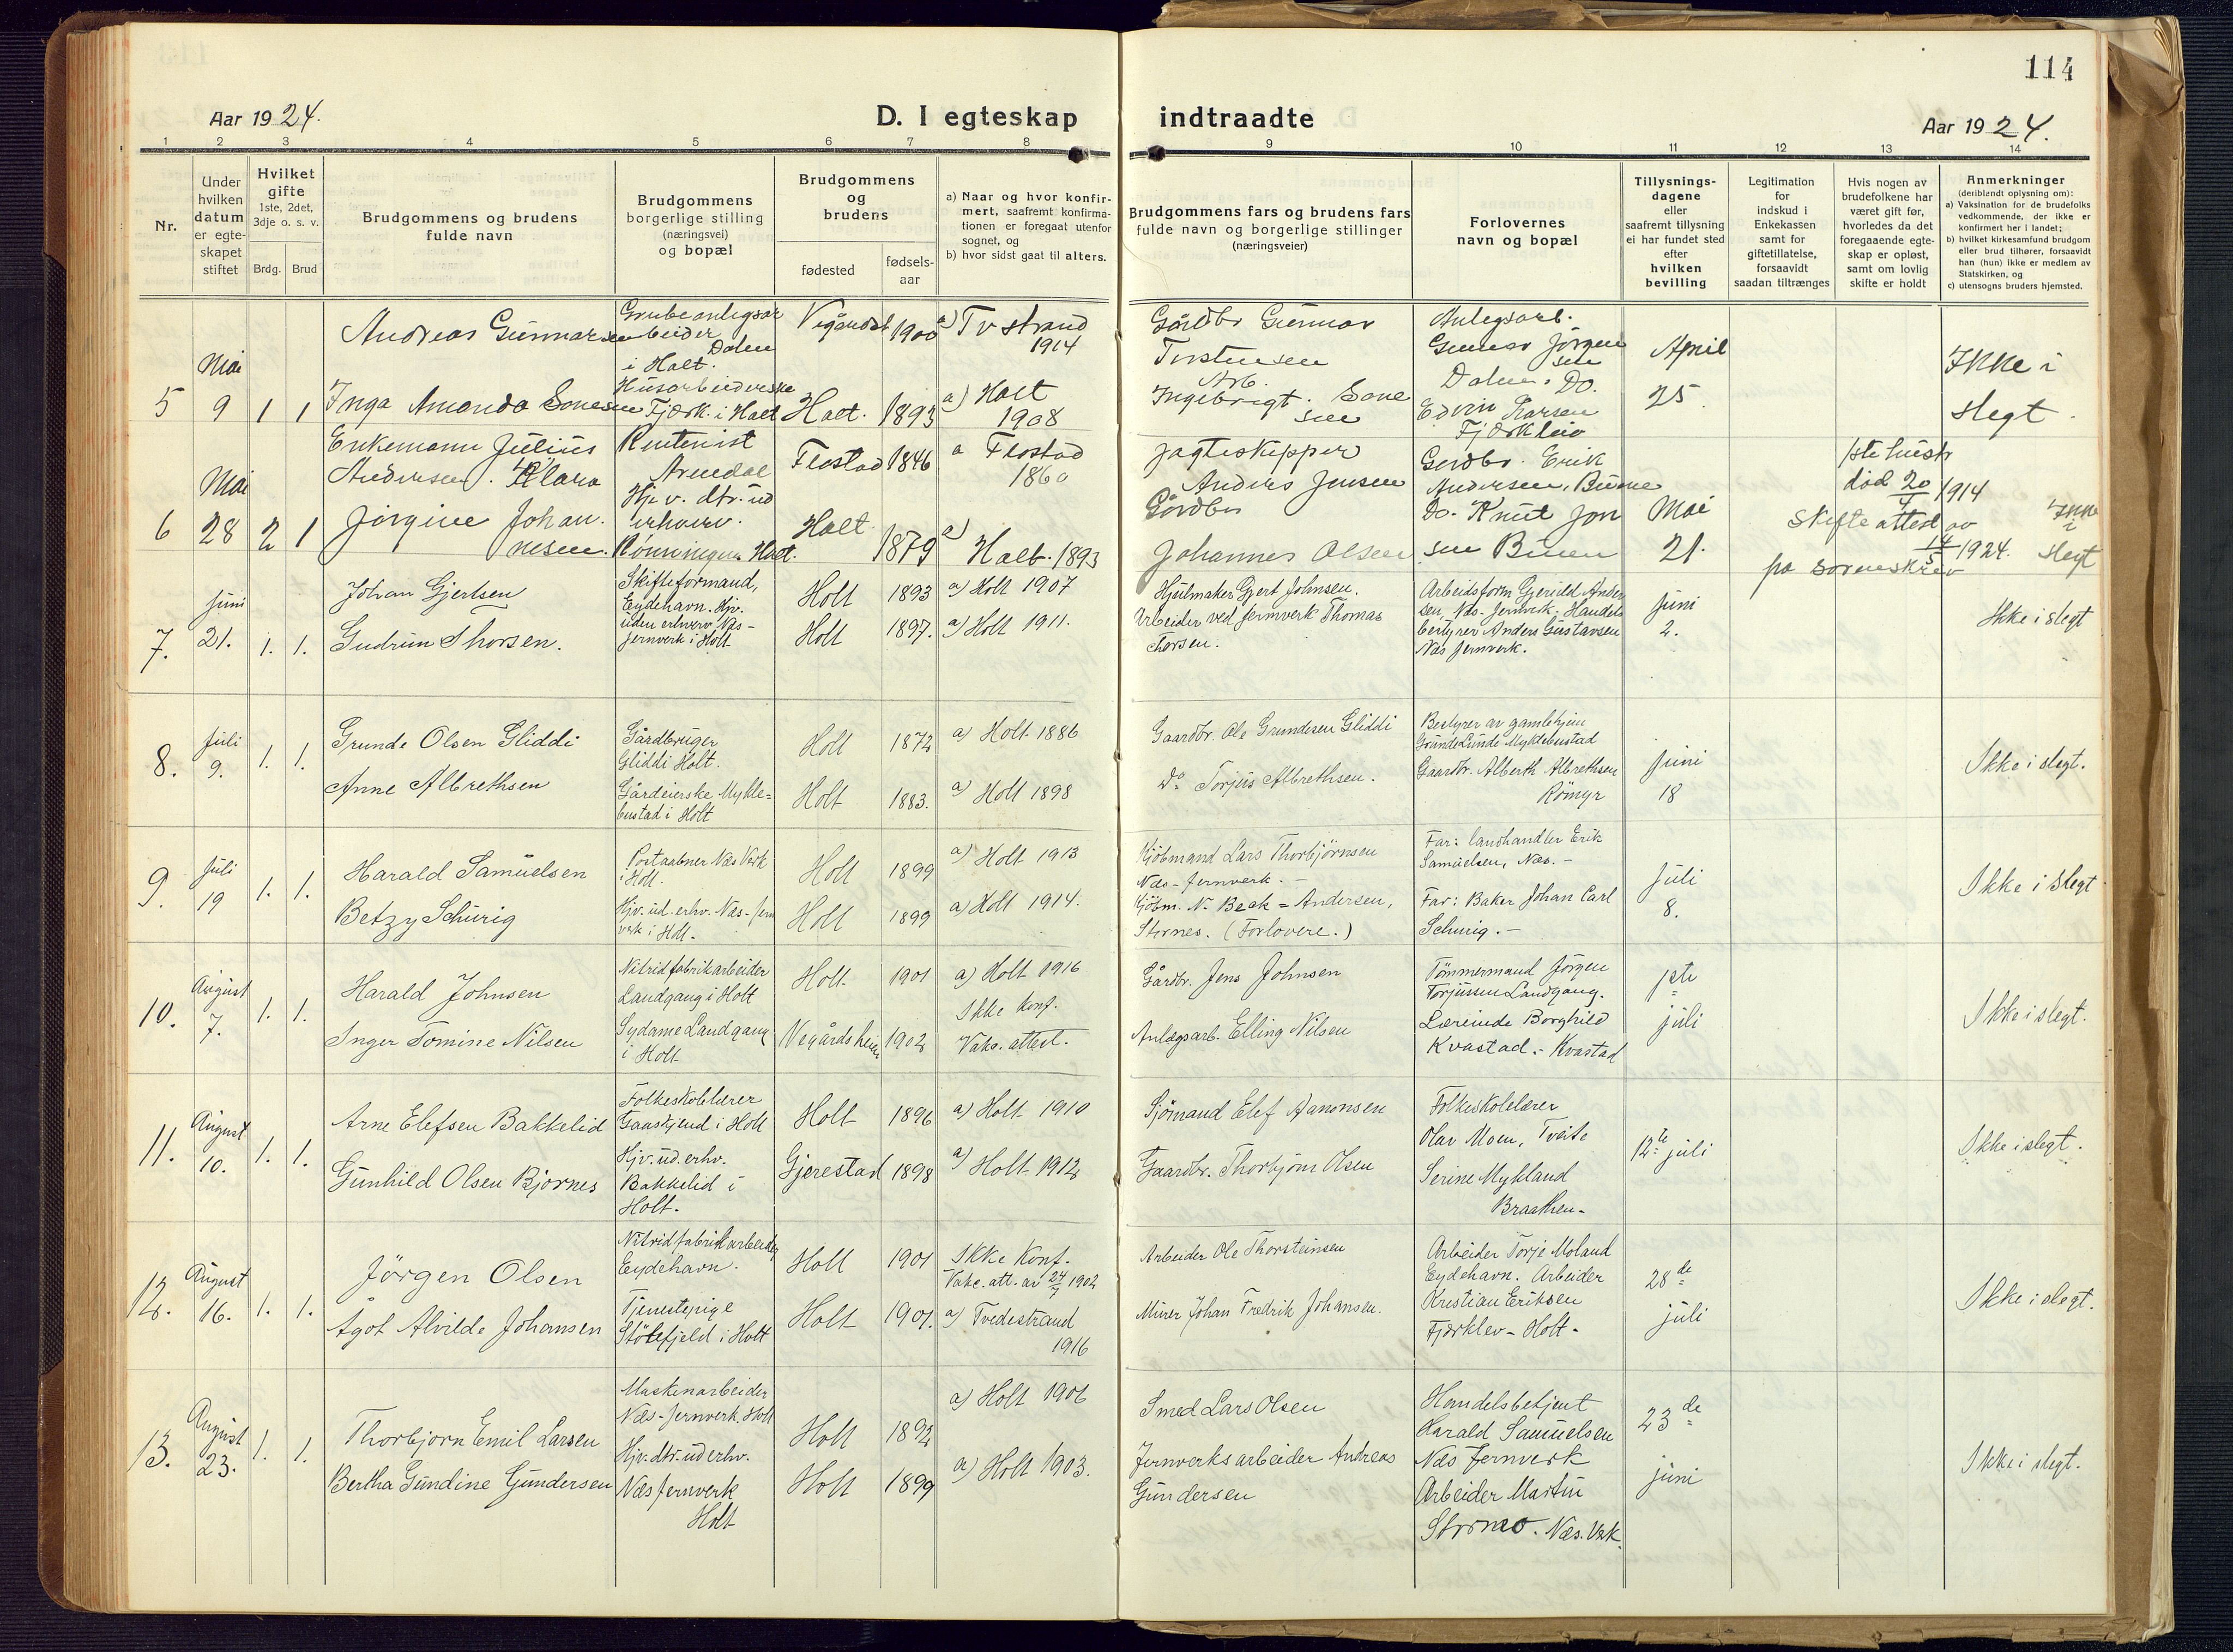 114
Aar 1924.
D. I egteskap
indtraadte
Aar 1924.
1 2 3 4 5 6 7 8 9 10 11 12 13 14
Nr.
Under
hvilken
datum
er egte-
skapet
stiftet
Hvilket
gifte
1ste, 2det,
3dje o. s. v.
Brdg. Brud
Brudgommens og brudens
fulde navn
Brudgommens
borgerlige stilling
(næringsvei)
og bopæl
Brudgommens
og
brudens
fødested
fødsels-
aar
a) Naar og hvor konfir-
mert, saafremt konfirma-
tionen er foregaat utenfor
sognet, og
b) hvor sidst gaat til alters.
Brudgommens fars og brudens fars
fulde navn og borgerlige stillinger
(næringsveier)
Forlovernes
navn og bopæl
Tillysnings-
dagene
eller
saafremt tillysning
ei har fundet sted
efter
hvilken
bevilling
Legitimation
for
indskud i
Enkekassen
samt for
giftetillatelse,
forsaavidt
saadan tiltrænges
Hvis nogen av
brudefolkene har
været gift før,
hvorledes da det
foregaaende egte-
skap er opløst,
samt om lovlig
skifte er holdt
Anmerkninger
(deriblandt oplysning om):
a) Vaksination for de brudefolks
vedkommende, der ikke er
konfirmert her i landet;
b) hvilket kirkesamfund brudgom
eller brud tilhører, forsaavidt
han (hun) ikke er medlem av
Statskirken, og
c) utensogns bruders hjemsted.
5
Mai
9
1 1
Andreas Gunnarsen
Inga Amanda Sonesen
Grubeanlegsar
beider
Dalen
i Holt.
Husarbeiderske
Fjærk. i Holt
Holt.
1900
1893
a) Tvstrand
1914
a) Holt
1908
Gårdbr Gunnar
Torstensen
Arb.
Ingebrigt Sone
sen
Anlegsarb.
Gunnar Jörgen
sen
Dalen. Do.
Edvin Karsen
Fjærkleiv
April
25
Ikke i
slegt.
6
Mai
28
2 1
Enkemann Julius
Andersen. Klara
Jörgine Johan.
nesen.
Rentenist
Arendal
Hj. v. dtr. ud
erhverv.
Rönningen Holt.
Flostad
Holt
1846
1879
a Flostad
1860
a)
Holt. 1893
Jagteskipper
Anders Jensen
Gårdbr
Johannes Olsen
Gårdbr. Erik
Andersen,
Do. Knut Jon
sen
Mai
21.
1ste hustr
död 20/4 1914
Skifteattest av
14/5 1924.
fra sorenskriv
Ikke
i
slegt
7.
Juni
21.
1. 1.
Johan Gjertsen
Gudrun Thorsen.
Skifteformand,
Eydehavn. Hjv.
uden erhverv Næs-
jernverk i Holt
Holt
Holt
1893
1897.
a) Holt 1907
a) Holt 1911.
Hjulmaker Gjert Johnsen.
Arbeider ved jernverk Thomas
Thorsen.
Arbeidsform Gjerild Ander
sen, Næs-Jernverk. Handels
bestyrer Anders Gustavsen
Næs jernverk.
Juni
2.
Ikke i slegt
8.
Juli
9.
1. 1.
Grunde Olsen Gliddi
Anne Albrethsen
Gårdbruger
Gliddi Holt.
Gårdeierske Mykle=
bustad i Holt
Holt
Holt
1872
1883.
a) Holt 1886
a) Holt 1898
Gaardbr. Ole Grundesen Gliddi
Do Torjus Albrethsen.
Bestyrer av gamlehjem
Grunde Lunde Myklebustad
Gaardbr. Alberth Albrethsen
Römyr
Juni
18
Ikke i slegt.
9.
Juli
19
1. 1.
Harald Samuelsen
Betzy Schurig
Postaabner Næs Verk
i Holt.
Hjv. ud. erhv. Næs-Jern
verk i Holt.
Holt
Holt
1899
1899
a) Holt 1913
a) Holt 1914.
Kjöbmand Lars Thorbjörnsen
Næs-Jernverk. -
Kjöbm. N. Beck - Andersen,
Sternes. (Forlovere.)
Far: landhandler Erik
Samuelsen, Næs. -
Far: Baker Johan Carl
Schurig. -
Juli
8.
Ikke i slegt
10.
August
7.
1. 1.
Harald Johnsen
Inger Tomine Nilsen
Nitridfabrikarbeider
Landgang i Holt
Sydame Landgang
i Holt
Holt
Vegårdsheien
1901
1902
a) Holt 1916
Ikke konf.
Vakc. attest.
Gårdbr. Jens Johnsen
Anlægsarb. Elling Nilsen
Tömmermand Jörgen
Torjussen Landgang.
Lærerinde Borghild
Kvastad. - Kvastad
1ste
juli
Ikke i slegt.
11.
August
10.
1. 1.
Arne Elefsen Bakkelid
Gunhild Olsen Bjornes
Folkeskolelærer
Goaskjend i Holt
Hjv. ud. erhv.
Bakkelid i
Holt.
Holt
Gjerestad
1896
1898
a) Holt 1910
a) Holt 1912
Sjömand Elef Aanonsen
Gaardbr. Thorbjörn Olsen
Folkeskolelærer
Olav Moen, Tveite
Serine Mykland
Braathen-
12te juli
Ikke i slegt.
12.
August
16.
1. 1.
Jörgen Olsen
Ågot Alvilde Johansen
Nitridfabrikarbeider
Eydehavn.
Tjenestepige
Stölefjeld i Holt
Holt
Holt
1901
1901.
Ikke Konf.
Vakc. att. av 24/7 1902
a) Tvedestrand
1916
Arbeider Ole Thorsteinsen
Murer Johan Fredrik Johansen.
Arbeider Torje Moland
Eydehavn. Arbeider
Kristian Eriksen
Fjærklev - Holt.
28de
juli
Ikke i slegt.
13.
August
23.
1. 1.
Thorbjorn Emil Larsen
Bertha Gundine Gundersen
Maskinarbeider
Næs-Jernverk. Holt
Hjv. dtr. ud erhv.
Næs jernverk
Holt
Holt
Holt
1892
1899
a) Holt 1906
a) Holt 1903.
Smed Lars Olsen
Jernverksarbeider Andreas
Gundersen
Handelsbetjent
Harald Samuelsen
Næs Jernverk
Arbeider Martin
Stormo. Næs. Vrk.
23de
juni
Ikke i slegt.